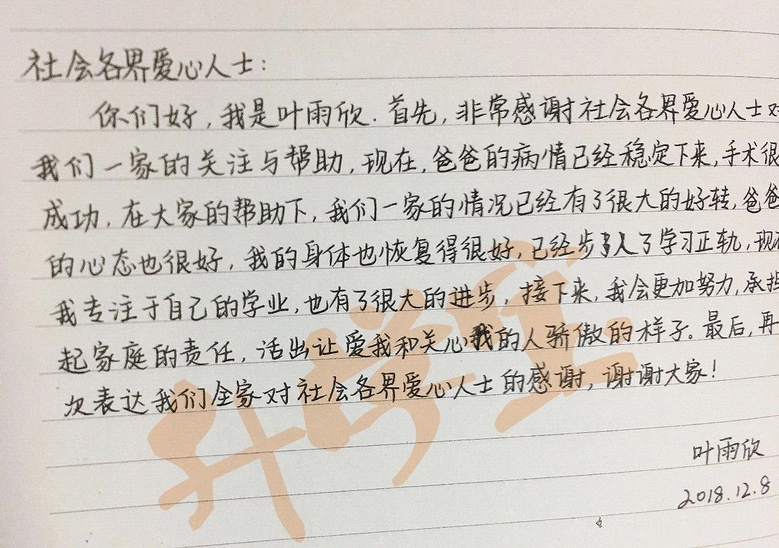 社会各界爱心人士:
你们好,我是叶雨欣.首先,非常感谢社会各界爱心人士对
我们一家的关注与帮助,现在,爸爸的病情已经稳定下来,手术很
成功,在大家的帮助下,我们一家的情况已经有了很大的好转,爸爸
的心态也很好,我的身体也恢复得很好,已经步入了学习正轨,现在
我专注于自己的学业,也有了很大的进步,接下来,我会更加努力,承担
起家庭的责任,活出让爱我和关心我的人骄傲的样子。最后,再一
次表达我们全家对社会各界爱心人士的感谢,谢谢大家!
叶雨欣
2018.12.8
升学宝